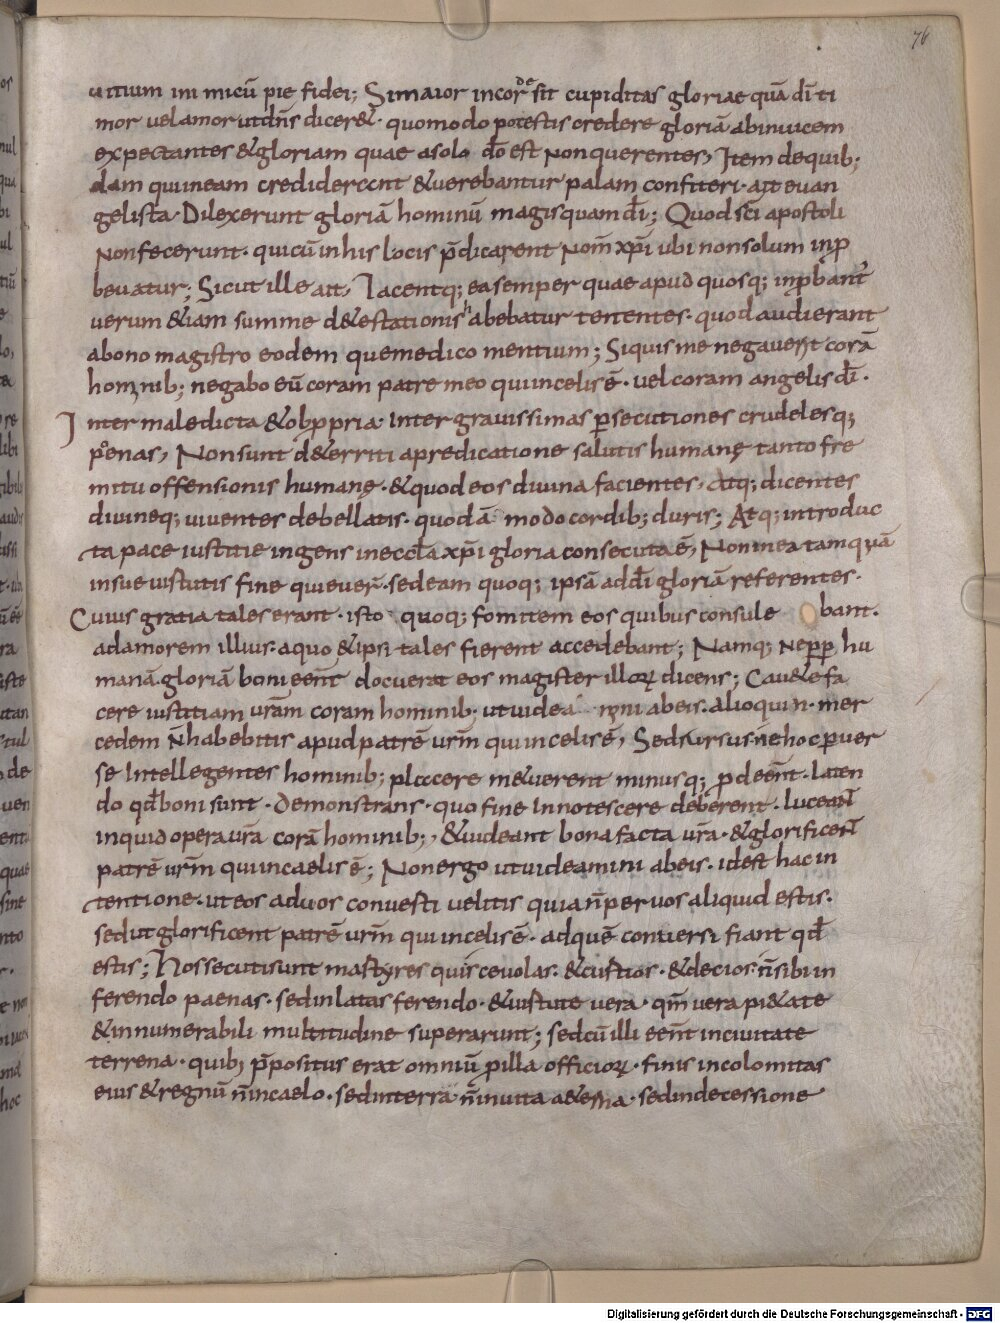 76
uitium inimicū pię fidei; Si maior in corde sit cupiditas gloriae quā dī ti
mor vel amor ut dn̄s diceret· quomodo potestis credere gloriā ab inuicem
expectantes & gloriam quae a solo dō est non querentes, Item de quib;
dam qui in eam crediderunt & uerebantur palam confiteri· ait euan
gelista· Dilexerunt gloriā hominū magis quam dī; Quod sc̄i apostoli
non fecerunt· qui cū in his locis p̄dicarent nom̄ xp̄i ubi non solum inp
beuatur; Sicut ille ait, Iacentq; ea semper quae apud quosq; inpbant̄
uerum &iam summe d&estationis habebatur tenentes· quod audierant
a bono magistro eodem quemedico mentium; Si quis me negauerit corā
hominib; negabo eū coram patre meo qui in celis ē· vel coram angelis dī·
Inter maledicta & obppria· inter grauissimas psecutiones crudelesq;
poenas, Non sunt d&erriti a predicatione salutis humanę tanto fre
mitu offensionis humanę· & quod eos diuina facientes, atq; dicentes
diuineq; uiuentes debellatis· quodā modo cordib; duris; Atq; introduc
ta pace iustitie ingens in eccl̄a xp̄i gloria consecuta ē, Non in ea tamquā
in sue uistutis fine quieuer̄· sed eam quoq; ipsā ad dī gloriā referentes·
Cuius gratia tales erant· isto quoq; fomitem eos quibus consule bant·
ad amorem illius· a quo & ipsi tales fierent accedebant; Namq; ne pp hu
manā gloriā boni eēnt docuerat eos magister illoꝝ dicens; Cau&e fa
cere iustitiam urām coram hominib; ut uideamini ab eis· alioquin· mer
cedem n̄ habebitis apud patrē urm̄ qui in celis ē, Sed rursus· ne hoc peruer
se intellegentes hominib; placere m&uerent minusq; pdeēnt· laten
do qd̄ boni sunt· Demonstrans· quo fine innotescere deberent· luceant
inquid opera ur̄a corā hominib;, & uideant bona facta ur̄a· & glorificent
patrē urm̄ qui in caelis ē; Non ergo ut uideamini ab eis· id est hac in
tentione· ut eos ad uos conuesti uelitis quia n̄ per uos aliquid estis·
sed ut glorificent patrē urm̄ qui in celis ē· ad quē conuersi fiant qd̄
estis; Hos secuti sunt mastyres qui scevolas· & custios· & decios· n̄ sibi in
ferendo paenas· sed inlatas ferendo· & uistute uera· qm̄ uera pi&ate
& innumerabili multitudine superarunt; sed cū illi eēnt in ciuitate
terrena· quib; p̄positus erat omniū p illa officioꝝ· finis incolomitas
eius & regnū n̄ in caelo· sed in terra· n̄ in uita a&erna· sed in decessione
Digitalisierung gefördert durch die Deutsche Forschungsgemeinschaft - DFG